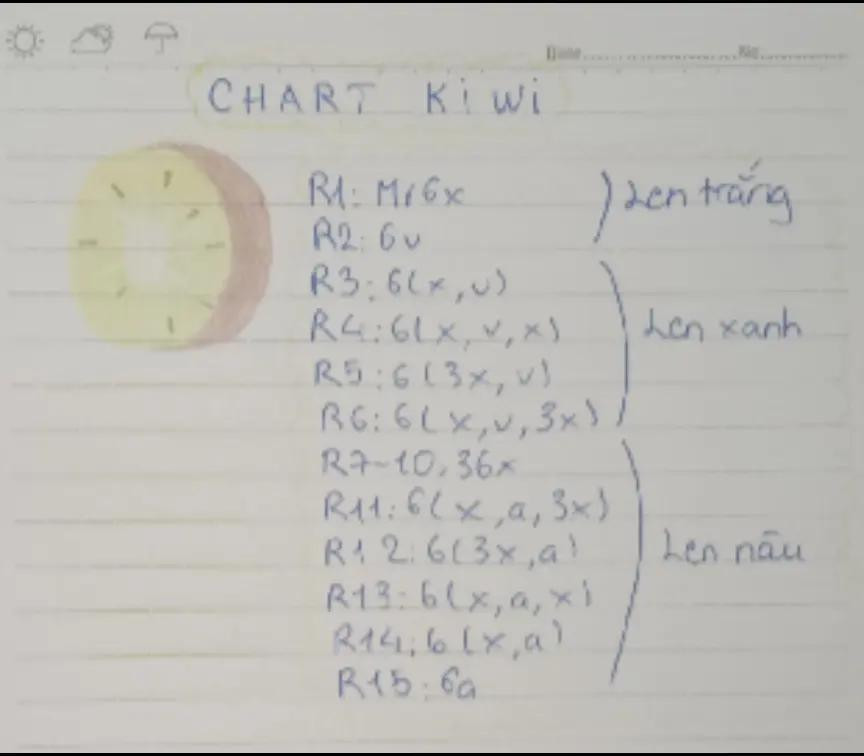 Date No
CHART KiWi
R1: Mr6x
R2: 6v
Len trắng
R3: 6(x, v)
R4: 6(x, v, x)
R5: 6(3x, v)
R6: 6(x, v, 3x)
Len xanh
R7-10, 36x
R11: 6(x, a, 3x)
R12: 6(3x, a)
R13: 6(x, a, x)
R14: 6(x, a)
R15: 6a
Len nâu